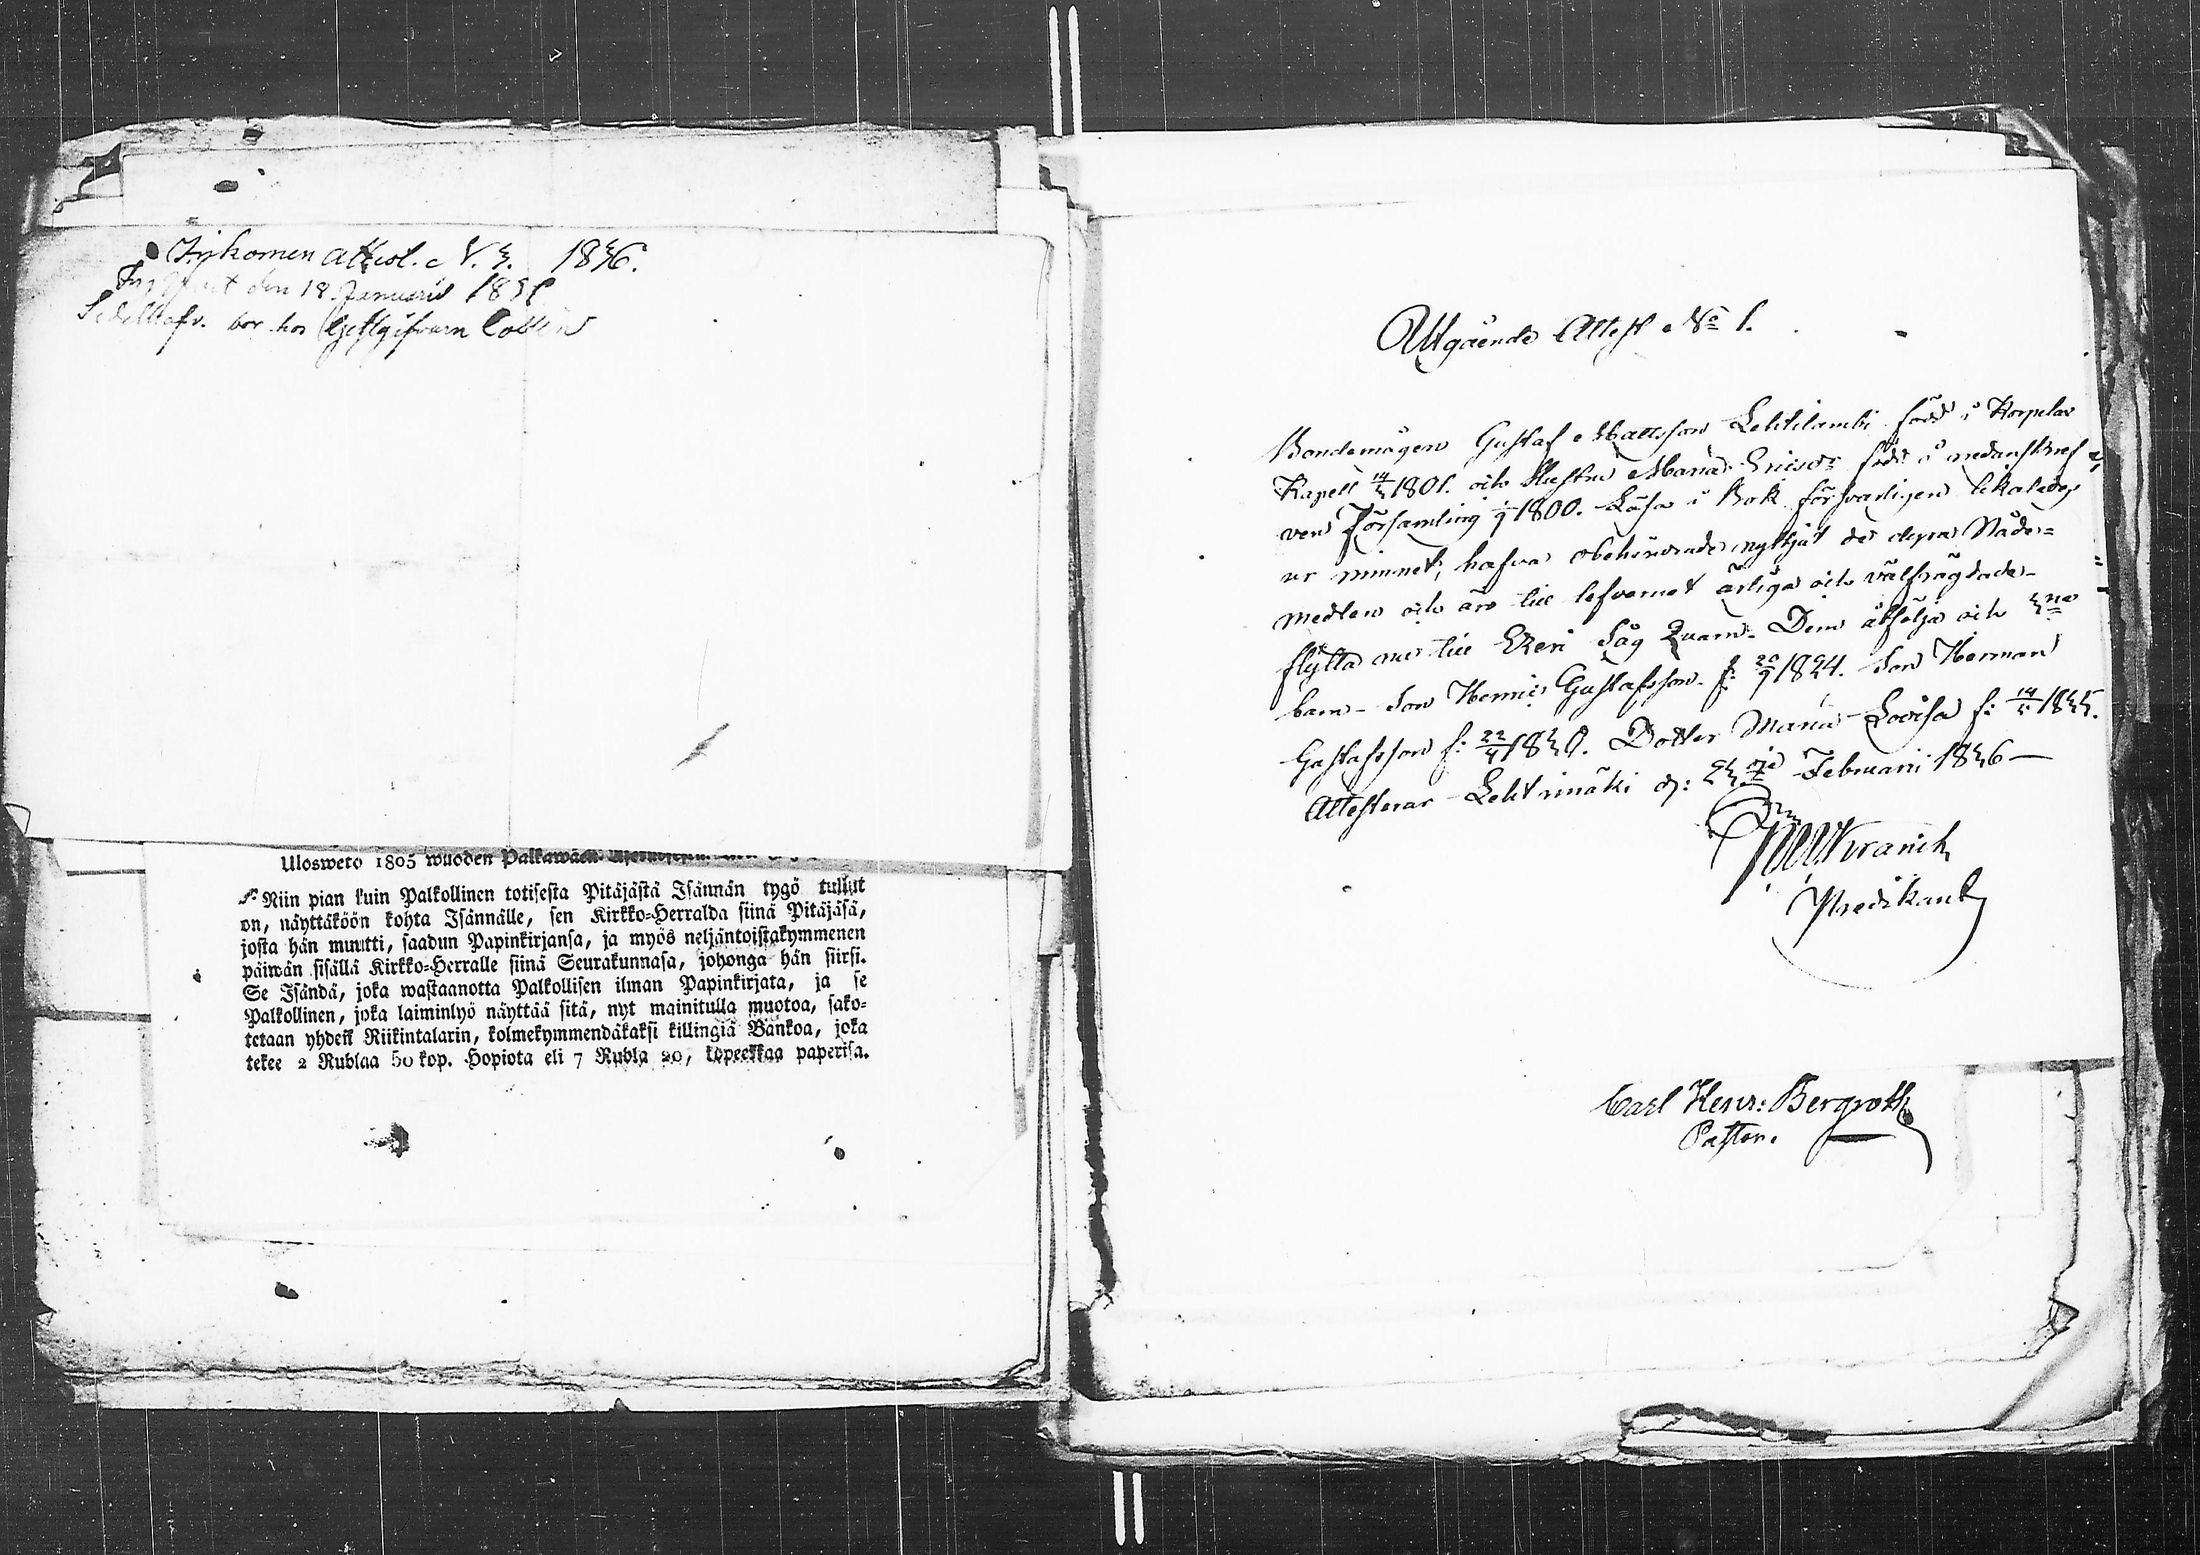 Inkomen attest. N. 3. 1836.
den 18 Januarii 1836
bor hos Gestgifvarn
Ulosweto 1805 wuoden
Niin pian kuin Palkollinen totisesta Pitäjästä Isännän tygö tullut
on, näyttäköön kohta Isännälle, sen Kirkko-Herralda siinä Pitäjäsä,
josta hän muutti, saadun Papinkirjansa, ja myös neljäntoistakymmenen
päiwän sisällä Kirkko-Herralle siinä Seurakunnasa, johonga hän siirsi.
Se Isändä, joka wastaanotta Palkollisen ilman Papinkirjata, ja se
Palkollinen, joka laiminlyö näyttää sitä, nyt mainitulla muotoa, sako-
tetaan yhdeñ Riikintalarin, kolmekymmendäkaksi killingiä Bankoa, joka
tekee 2 Rublaa 50 kop. Hopiota eli 7 Rubla 20, kopeekkaa paperisa.
Utgående Attest No 1.
Bondemågen Gustaf Mattsson Lehtilambi född i Korpelax
Kapell 14/3 1801. och Hustru Maria Ericsdr född i nedanskref-
ven Församling 1/9 1800. Läsa i Bok försvarligen likaledes
ur minnet, hafva obehindrade nyttjat de dyra Nåde-
medlen och äro till lefvernet ärliga och välfrägdade
flytta nu till Ekeri Såg Quarn. Dem åtfölja och 3ne
barn - Son Henric Gustafsson f: 20/9 1824. Son Herman
Gustafsson f: 22/4 1830. Dotter Maria Lovisa f: 14/5 1835.
Attesterar Lehtimäki d: 23 Februarii 1836 —
Predikant
Carl Henr: Bergroth
Pastor.